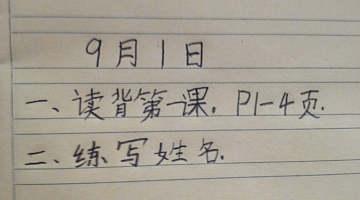 9月1日
一、读背第一课. P1-4页.
二、练写姓名.